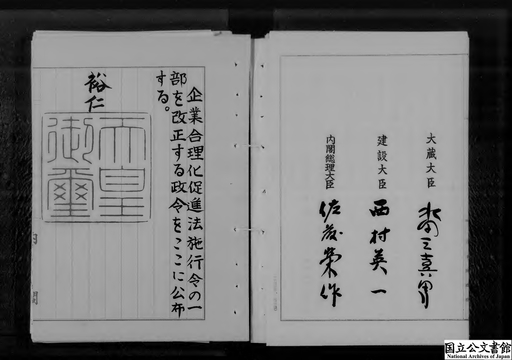 大蔵大臣
水田三喜男
建設大臣
西村英一
内閣総理大臣
佐藤榮作
企業合理化促進法施行令の一
部を改正する政令をここに公布
する。
裕仁
天皇
御璽
国立公文書館
National Archives of Japan